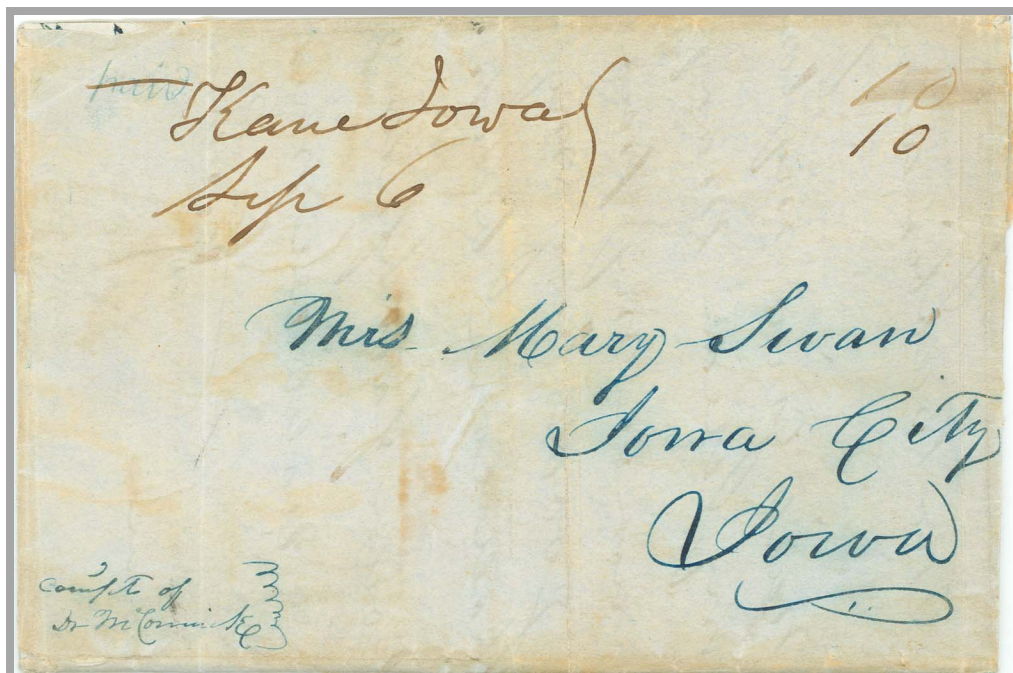 paid
Kane Iowa
Sep 6
10
10
Mrs. Mary Swan
Iowa City
Iowa
compts of
Dr McCormick